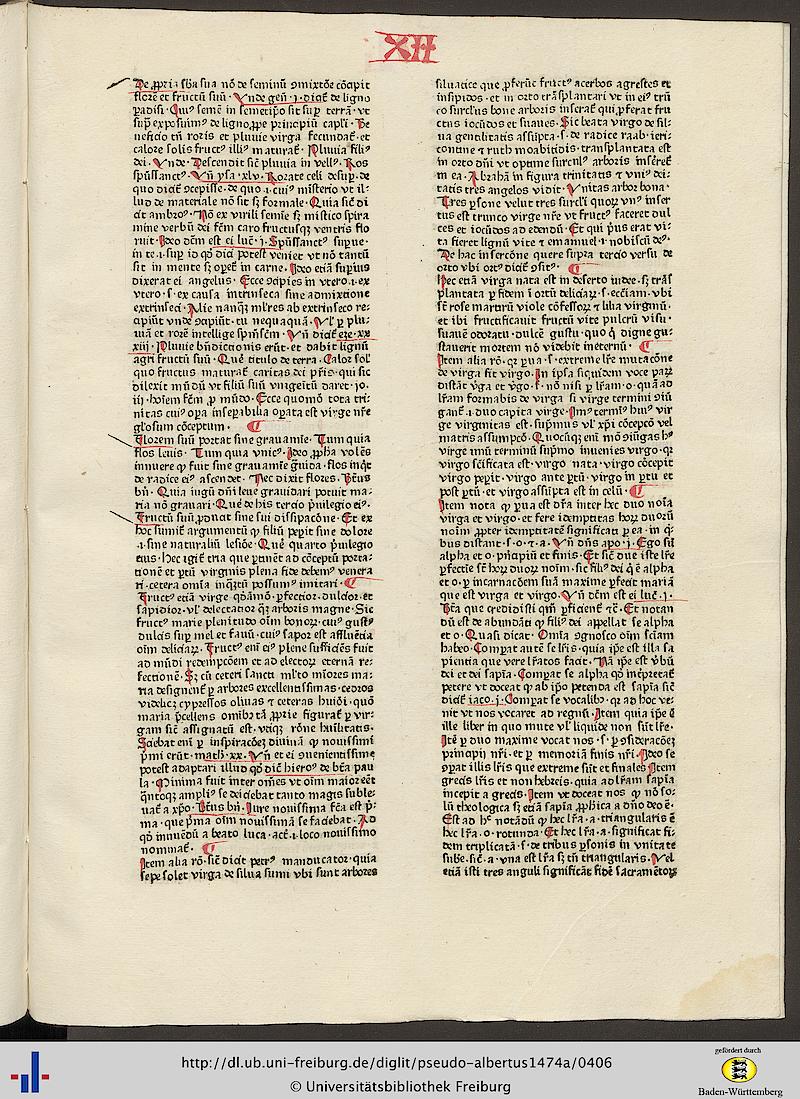 XII
De ꝓpria sb̄a sua nō de seminū ꝯmixtōe cōcipit
florē et fructū suū · Vnde gen̄ · i · dicit᷑ de ligno
ꝑadisi · Cuiꝰ semē in semetip̄o sit suꝑ terrā · vt
sup̄ exposuimꝰ de ligno ꝓpe principiū capl̓i · Be
neficio tn̄ roris et pluuie virga fecundat᷑ · et
calore solis fructꝰ illiꝰ maturat᷑ · Pluuia filiꝰ
dei · Vnde · Descendit sic̄ pluuia in vellꝰ · Ros
sp̄ussanctꝰ · Vn̄ ysa · xlv · Rorate celi desuꝑ · de
quo dicit᷑ ꝯcepisse · de quo · i · cuiꝰ misterio vt il-
lud de materiale nō sit sꝫ formale · Quia sic̄ di
cit ambroꝰ · Nō ex virili semīe sꝫ mistico spira
mine verbū dei fc̄m caro fructusqꝫ ventris flo
ruit · Ideo dc̄m est ei luc̄ · i · Sp̄ussanctꝰ supue ·
in te · i · suꝑ id qd̓ dici potest veniet vt nō tantū
sit in mente sꝫ oꝑet᷑ in carne · Ideo etiā supius
dixerat ei angelus · Ecce ꝯcipies in vtero · i · ex
vtero · s · ex causa intrinseca sine admixtione
extrinseci · Alie nanqꝫ ml̓res ab extrinseco re-
cipiūt vnde ꝯcipiūt · tu nequaquā · Vl̓ ꝑ plu-
uiā et rorē intellige sp̄m sc̄m · Vn̄ dicit᷑ eze · xx
xiij · Pluuie bn̄dictionis erūt · et dabit lignū
agri fructū suū · Que titulo de terra · Calor sol̓
quo fructus maturat᷑ caritas dei pr̄is · qui sic
dilexit mūdū vt filiū suū vnigenitū daret · jo ·
iij · hoīem fc̄m ꝓ mūdo · Ecce quomō tota tri-
nitas cuiꝰ oꝑa inseꝑabilia oꝑata est virgē nr̄e
gl̓osum cōceptum ·
Florem suū portat sine grauamīe · Tum quia
flos leuis · Tum quia vnicꝰ · Ideo ꝓpha volēs
innuere ꝙ fuit sine grauamīe grauida · flos inq̄t
de radice eiꝰ ascendet · Nec dixit flores · Btūs
bn̄ · Quia iugū dn̄i leue grauidari potuit ma-
ria nō grauari · Que de his tercio pͥuilegio eiꝰ ·
Fructū suū ꝓducit sine sui dissipacōne · Et ex
hoc sumit᷑ argumentū ꝙ filiū peꝑit sine dolore
· i · sine naturaliū lesiōe · Que quarto pͥuilegio
eius · Hec igit᷑ tria que ꝑtinēt ad cōceptū porta-
tionē et ꝑtū virginis plena fide debemꝰ venera
ri · cetera oīnia inq̄ntū possumꝰ imitari ·
Fructꝰ etiā virge qd̓āmō ꝑfectior · dulcior · et
sapidior · vl̓ delectatior qꝫ arboris magne · Sic
fructꝰ marie plenitudo oīm bonoꝝ · cuiꝰ gustꝰ
dulcis suꝑ mel et fauū · cuiꝰ sapor est affluētia
oīm deliciaꝝ · Fructꝰ eni̅ eiꝰ plene sufficiēs fuit
ad mūdi redempcōem et ad electoꝝ eternā re-
fectionē · Sꝫ cū ceteri sancti ml̓to miores ma-
ria designent᷑ ꝑ arbores excellentissimas · cedros
videlicꝫ cypressos oliuas ⁊ ceteras huiōi · quō
maria p̄cellens omībꝫ tā ꝓprie figurat᷑ ꝑ vir-
gam sic̄ assignatū est · vtiqꝫ rōne hūilitatis ·
Sciebat eni̅ ꝑ inspiracōeꝫ diuinā ꝙ nouissimi
pͥmi erūt · math · xx · Vn̄ et ei ꝯuenientissime
potest adaptari illud qd̓ dic̄ hieroꝰ de bt̄a pau
la · Minima fuit inter om̄es vt oīm maior eēt
q̄ntoqꝫ ampliꝰ se deiciebat tanto magis suble-
uat᷑ a xp̄o · Btūs bn̄ · Jure nouissima fc̄a est pͥ-
ma · que pͥma oīm nouissimā se faciebat · Ad
qd̓ innuēdū a beato luca · act᷑ · i · loco nouissimo
nominat᷑ ·
Item alia rō · sic̄ dicit petrꝰ manducator · quia
sepe solet virga de silua sumi vbi sunt arbores
siluatice que ꝓferūt fructꝰ acerbos agrestes et
insipidos · et in orto trāsplantari vt in eiꝰ trū
co surculus bone arboris inserat᷑ qui ꝓferat fru
ctus iocūdos et suaues · Sic beata virgo de sil-
ua gentilitatis assūpta · s · de radice raab · ieri-
contine ⁊ ruth moabitidis · transplantata est
in orto dn̄i vt optime surculꝰ arboris insereret᷑
in ea · Abrahā in figura trinitatis ⁊ vniꝰ dei-
tatis tres angelos vidit · Vnitas arbor bona ·
Tres ꝑsone velut tres surcl̓i quoꝝ vnꝰ inser
tus est trunco virge nr̄e vt fructꝰ faceret dul
ces et iocūdos ad edendū · Et qui pͥus erat vi-
ta fieret lignū vite ⁊ emanuel · i · nobiscū deꝰ ·
De hac insercōne quere supra tercio versu de
orto vbi ortꝰ dicit᷑ ꝯsitꝰ ·
Hec etiā virga nata est in deserto iudee · sꝫ trās
plantata ꝑ fidem ī ortū deliciaꝝ · s · ecc̄iam · vbi
sūt rose martirū viole cōfessoꝝ ⁊ lilia virginū ·
et ibi fructificauit fructū vite pulcrū visu ·
suaue odoratu · dulce gustu · quo q̓ digne gu-
stauerit mortem nō videbit ineternū ·
Item alia rō · qꝛ ꝑua · s · extreme lr̄e mutacōne
de virga fit virgo · In ipsa siquidem voce paꝝ
distāt v̓ga et v̓go · s̓ · nō nisi ꝑ lr̄am · o · quā ad
lr̄am formabis de virga si virge termini ꝯiū
gant᷑ · i · duo capita virge · Imꝰ termīꝰ huiꝰ vir
ge virginitas est · sup̄mus vl̓ xp̄i cōcepcō vel
matris assumpcō · Quocūqꝫ eni̅ mō ꝯiūgas hꝰ
virge imū terminū sup̄mo inuenies virgo · qꝛ
virgo sc̄ificata est · virgo nata · virgo cōcepit
virgo peꝑit · virgo ante ꝑtū · virgo in ꝑtu et
post ꝑtū · et virgo assūpta est in celū ·
Item nota ꝙ ꝑua est dr̄a inter hec duo noīa
virga et virgo · et fere idemptitas hoꝝ duorū
noīm ꝓpter idemptitatē significati ꝑ ea · in q̓-
bus distant · s · o · ⁊ · a · Vn̄ dn̄s apo · i · Ego sū
alpha et o · pͥncipiū et finis · Et sic̄ due iste lr̄e
ꝑfectie sūt hoꝝ duoꝝ noīm · sic filiꝰ dei q̓ ē alpha
et o · ꝑ incarnacōem suā maxime ꝑfecit mariā
que est virga et virgo · Vn̄ dc̄m est ei luc̄ · i ·
Bt̄a que credidisti qm̄ ꝑficient᷑ ⁊c̄ · Et notan
dū est de abundāti ꝙ filiꝰ dei appellat se alpha
et o · Quasi dicat · Om̄ia ꝯgnosco oīm scīam
habeo · Comꝑat autē se lr̄is · quia ip̄e est illa sa
pientia que vere lr̄atos facit · Nā ip̄e est v̓bū
dei et dei sapīa · Comꝑat se alpha qd̓ inēpretat᷑
petere vt doceat ꝙ ab ip̄o petenda est sapīa sic̄
dicit᷑ iaco · j · Comꝑat se vocalibꝫ · qꝛ ad hoc ve-
nit vt nos vocaret ad regnū · Item quia ip̄e ē
ille liber in quo mute vl̓ liquide non sūt lr̄e ·
Itē ꝑ duo maxime vocat nos · s · ꝑ ꝯsideracōeꝫ
principij nr̄i · et ꝑ memoriā finis nr̄i · Ideo se
ꝯꝑat illis lr̄is que extreme sūt et finales · Item
grecis lr̄is et non hebreis · quia ad lr̄am sapīa
incepit a grecis · Item vt doceat nos ꝙ nō so-
lū theologica sꝫ etiā sapīa ꝓphica a dn̄o deo ē ·
Est ad hꝰ notādū ꝙ hec lr̄a · a · triangularis ē
hec lr̄a · o · rotunda · Et hec lr̄a · a · significat fi-
dem triplicatā · s · de tribus ꝑsonis in vnitate
sub̄e · sic̄ · a · vna est lr̄a sꝫ tn̄ triangularis · Vel
etiā isti tres anguli significāt᷑ fidē sacramētoꝝ
http://dl.ub.uni-freiburg.de/diglit/pseudo-albertus1474a/0406
© Universitätsbibliothek Freiburg
gefördert durch
Baden-Württemberg